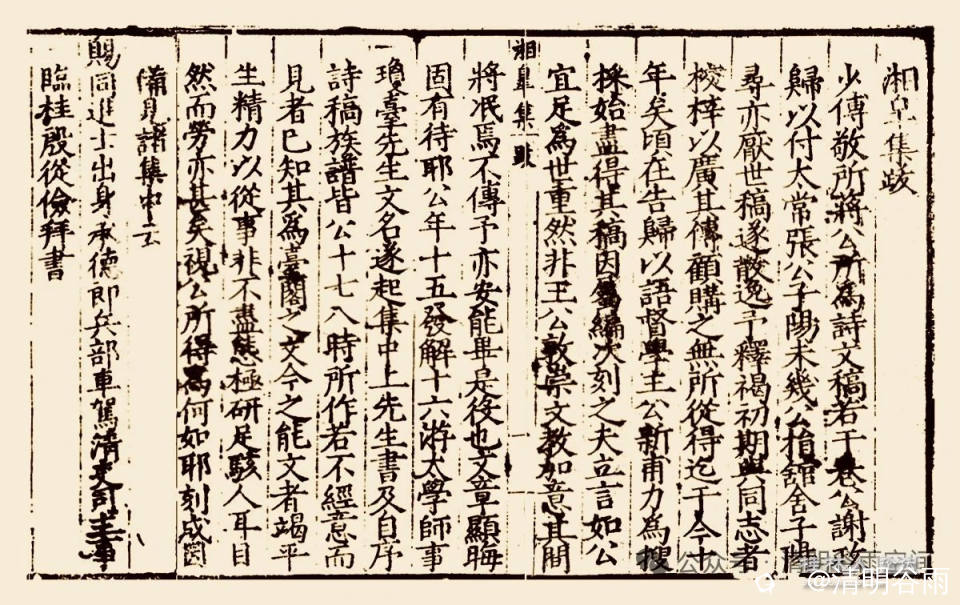 湘皋集跋
少傅敬所蔣公所為詩文稿若干卷公謝政
歸以付大常張公子陽未幾公捐舘舍子陽
尋亦厭世稿遂散逸予釋褐初期與同志者
梓以廣其傳顧購之無所從得迄于今十
年矣頃在告歸以語督學王公新甫力為搜
採始盡得其稿因屬編次刻之夫立言如公
宜足為世重然非王公敦崇文教加意其間
湘皋集 跋 一
將泯焉不傳予亦安能畀是役也文章顯晦
固有待耶公年十五發解十六游太學師事
瓊臺先生文名遂起集中上先生書及自序
詩稿族譜皆公十七八時所作若不經意而
見者已知其為臺閣之文今之能文者竭平
生精力以從事非不盡態極研足駭人耳目
然而勞亦甚矣視公所得為何如耶刻成因
備見諸集中云
賜同進士出身承德郎兵部車駕清吏司主事
臨桂殷從儉拜書
@清明谷雨